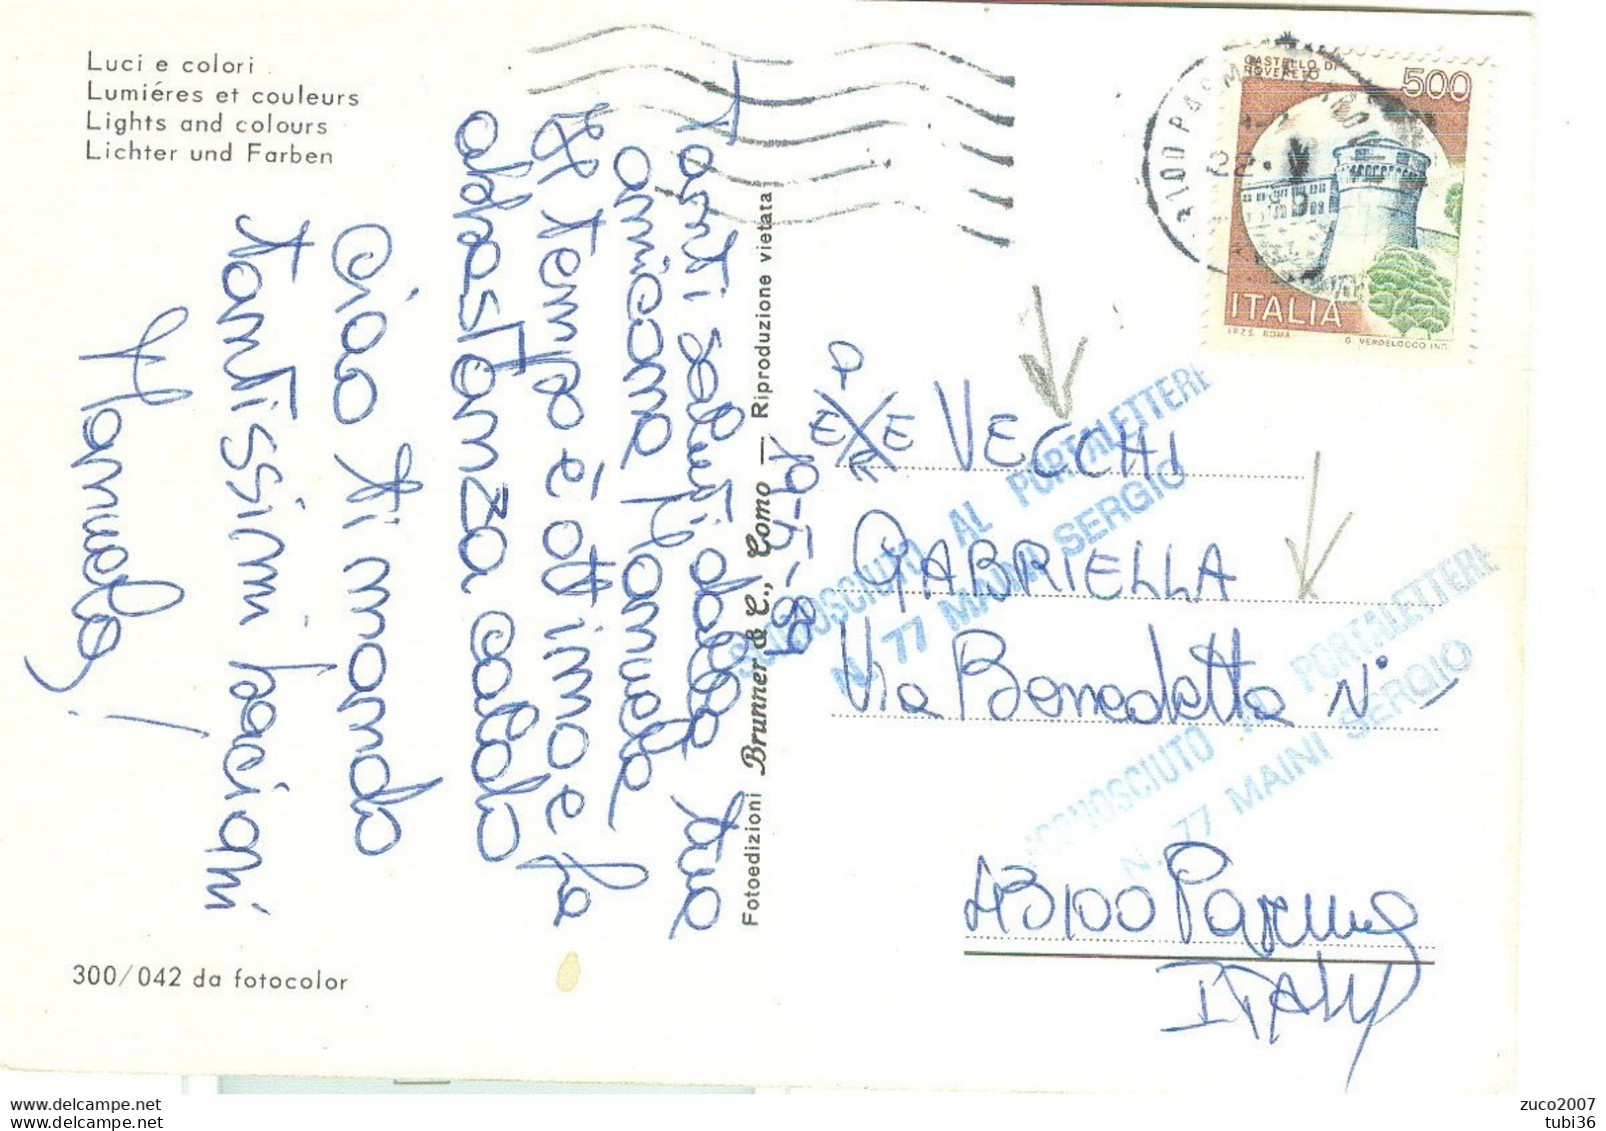 Luci e colori
Lumiéres et couleurs
Lights and colours
Lichter und Farben
Tanti saluti dalla tua
amicona Manuela
Il tempo è ottimo e fa
abbastanza caldo
Ciao ti mando
tantissimi bacioni
Manuela!
300/042 da fotocolor
Fotoedizioni Brunner & C., Como — Riproduzione vietata
19-5-89
CASTELLO DI
ROVERETO
500
ITALIA
I.P.Z.S. ROMA
G. VERDELOCCO INC.
22.
PER E VECCHI
GABRIELLA
Via Benedetta N°
43100 Parma
ITALY
SCONOSCIUTO AL PORTALETTERE
N. 77 MAINI SERGIO
SCONOSCIUTO AL PORTALETTERE
N. 77 MAINI SERGIO
www.delcampe.net
www.delcampe.net
zuco2007
tubi36